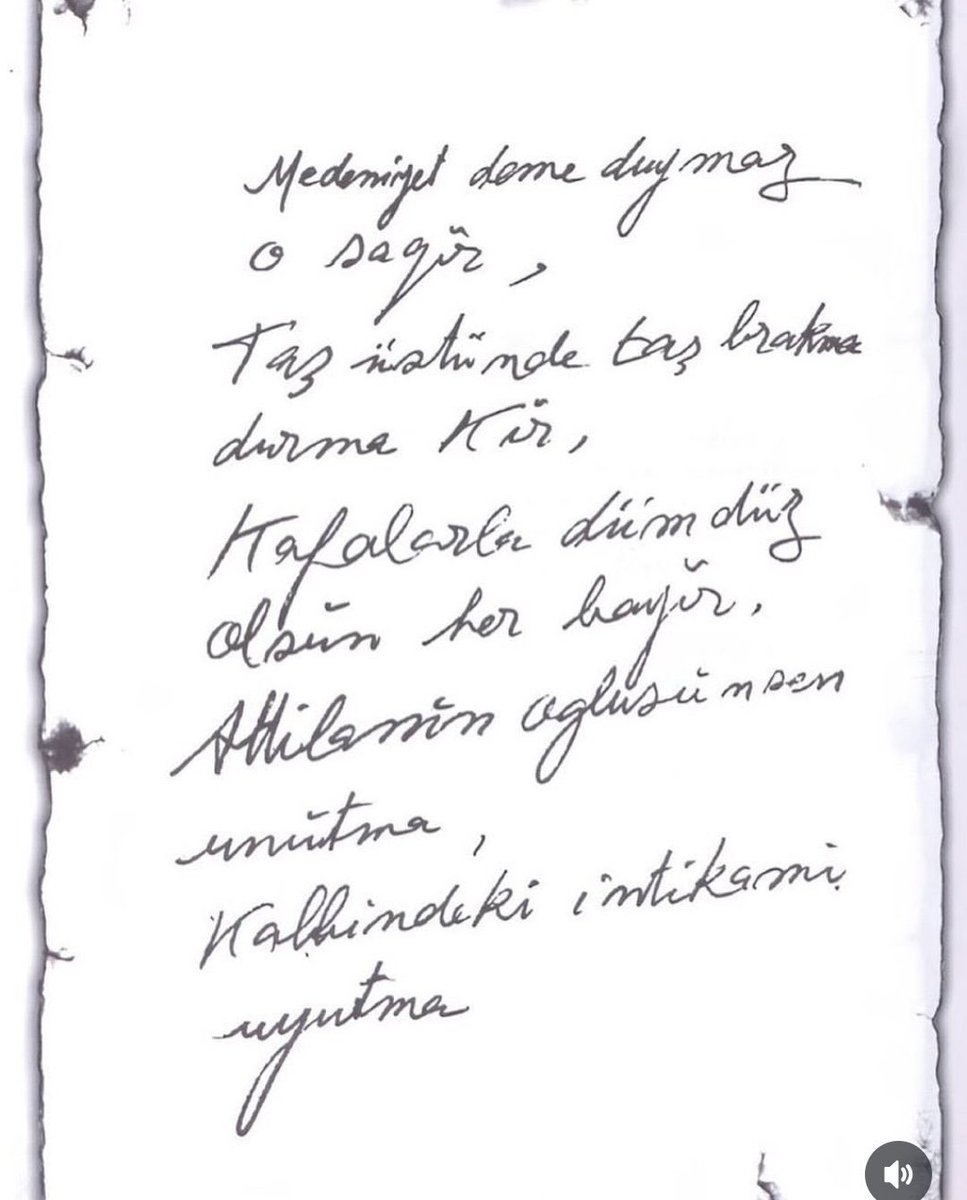 Medeniyet deme duymaz
o sagǐr,
Taş üstünde taş brakma
durma Kǐr,
Kafalarla dümdüz
olsǔn her bayǐr.
Attilanǐn oglusünsen
unǔtma,
Kalbindeki intikami
uyutma